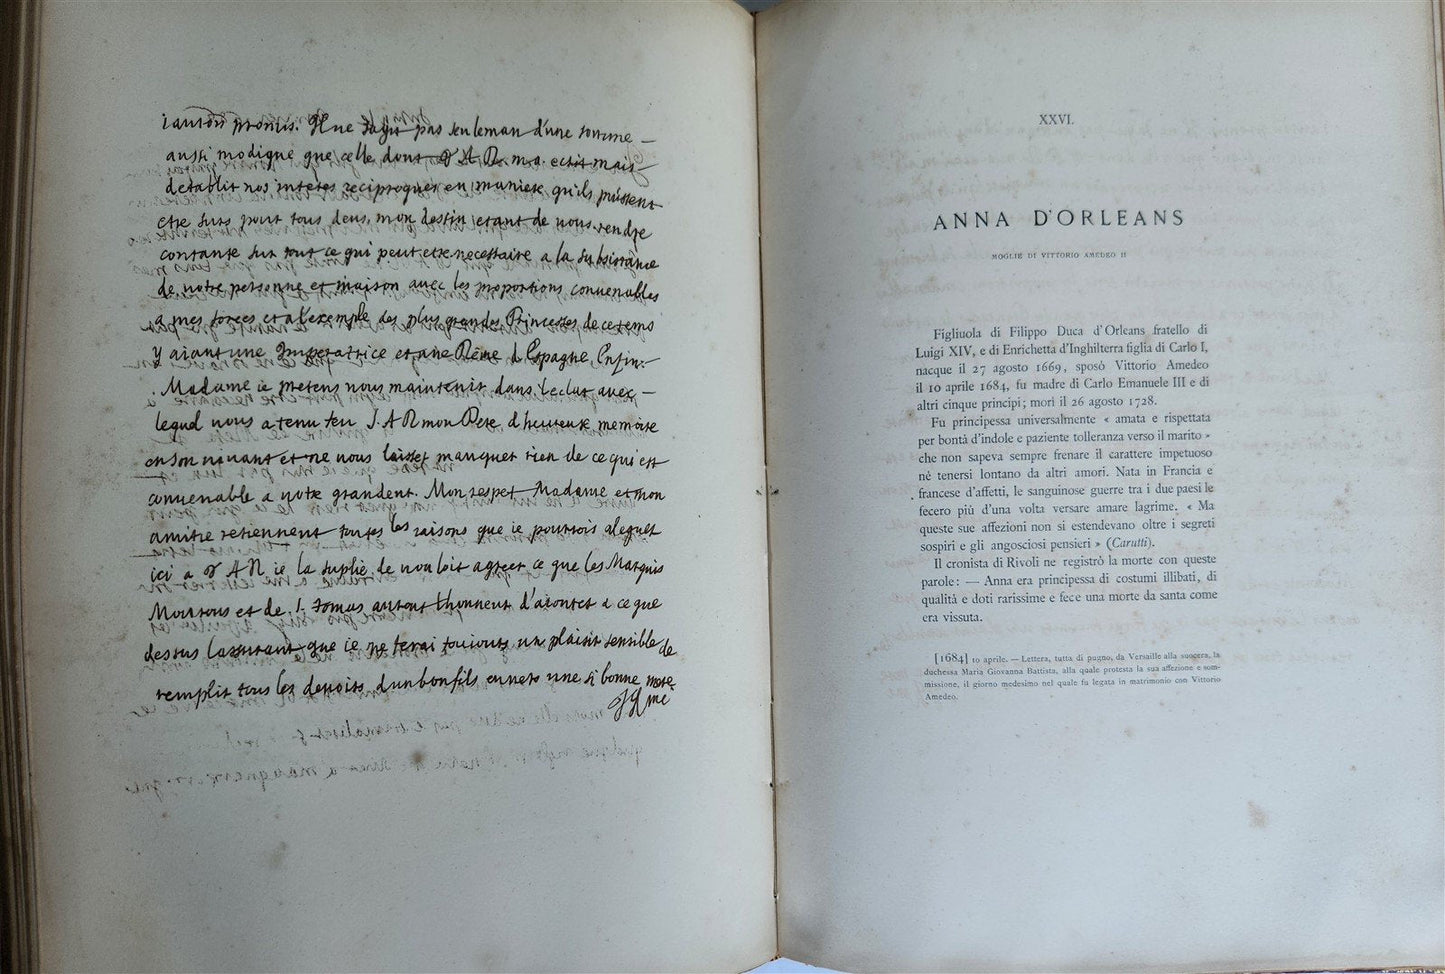 i auroit promis. Il ne sagit pas seuleman d'une somme
aussi modique que celle dont V A R. m.a. ecrit mais
detablir nos interes reciproques en maniere qu'ils puissent
etre surs pour tous deus, mon destin etant de vous rendre
contante sur tout ce qui peut etre necessaire a la subsistance
de votre personne et maison avec les proportions convenables
a mes forces et a l'exemple des plus grandes Princesses de ce tems
y aiant une Imperatrice et une Reine d Espagne, Enfin
Madame ie pretens vous maintenir dans leclat avec
lequel vous a tenu feu S.A R mon Pere d heureuse memoire
en son vivant et ne vous laisser manquer rien de ce qui est
convenable a votre grandeur. Mon respet Madame et mon
amitie retiennent toutes les raisons que ie pourrois aleguer
ici a V A R ie la suplie de vouloir agreer ce que les Marquis
Mourous et de S. Tomas auront lhonneur d'aiouter a ce que
dessus lassurant que ie me ferai touiours un plaisir sensible de
remplir tous les devoirs d'un bon fils envers une si bonne mere
XXVI.
ANNA D'ORLEANS
MOGLIE DI VITTORIO AMEDEO II
Figliuola di Filippo Duca d'Orleans fratello di
Luigi XIV, e di Enrichetta d'Inghilterra figlia di Carlo I,
nacque il 27 agosto 1669, sposò Vittorio Amedeo
il 10 aprile 1684, fu madre di Carlo Emanuele III e di
altri cinque principi; morì il 26 agosto 1728.
Fu principessa universalmente « amata e rispettata
per bontà d'indole e paziente tolleranza verso il marito »
che non sapeva sempre frenare il carattere impetuoso
nè tenersi lontano da altri amori. Nata in Francia e
francese d'affetti, le sanguinose guerre tra i due paesi le
fecero più d'una volta versare amare lagrime. « Ma
queste sue affezioni non si estendevano oltre i segreti
sospiri e gli angosciosi pensieri » (Carutti).
Il cronista di Rivoli ne registrò la morte con queste
parole: — Anna era principessa di costumi illibati, di
qualità e doti rarissime e fece una morte da santa come
era vissuta.
[1684] 10 aprile. — Lettera, tutta di pugno, da Versaille alla suocera, la
duchessa Maria Giovanna Battista, alla quale protesta la sua affezione e som-
missione, il giorno medesimo nel quale fu legata in matrimonio con Vittorio
Amedeo.